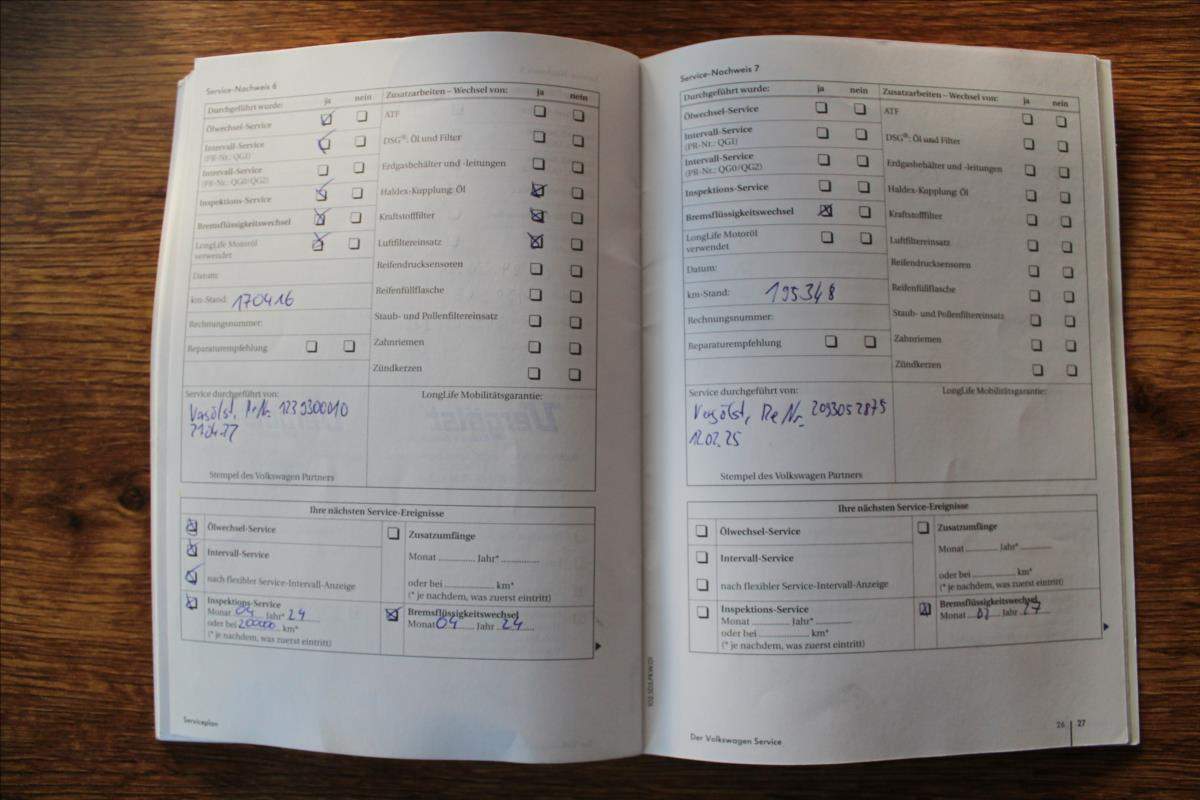 Service-Nachweis 6
Durchgeführt wurde: ja nein
Ölwechsel-Service
Intervall-Service
(PR-Nr.: QG1)
Intervall-Service
(PR-Nr.: QG0/QG2)
Inspektions-Service
Bremsflüssigkeitswechsel
LongLife Motoröl
verwendet
Datum:
km-Stand: 170416
Rechnungsnummer:
Reparaturempfehlung
Zusatzarbeiten – Wechsel von: ja nein
ATF
DSG®: Öl und Filter
Erdgasbehälter und -leitungen
Haldex-Kupplung: Öl
Kraftstofffilter
Luftfiltereinsatz
Reifendrucksensoren
Reifenfüllflasche
Staub- und Pollenfiltereinsatz
Zahnriemen
Zündkerzen
Service durchgeführt von:
Stempel des Volkswagen Partners
LongLife Mobilitätsgarantie:
Ihre nächsten Service-Ereignisse
Ölwechsel-Service
Intervall-Service
nach flexibler Service-Intervall-Anzeige
Inspektions-Service
Monat 04 Jahr* 24
oder bei 200000 km*
(* je nachdem, was zuerst eintritt)
Zusatzumfänge
Monat Jahr*
oder bei km*
(* je nachdem, was zuerst eintritt)
Bremsflüssigkeitswechsel
Monat 04 Jahr 24
Serviceplan
Service-Nachweis 7
Durchgeführt wurde: ja nein
Ölwechsel-Service
Intervall-Service
(PR-Nr.: QG1)
Intervall-Service
(PR-Nr.: QG0/QG2)
Inspektions-Service
Bremsflüssigkeitswechsel
LongLife Motoröl
verwendet
Datum:
km-Stand: 195348
Rechnungsnummer:
Reparaturempfehlung
Zusatzarbeiten – Wechsel von: ja nein
ATF
DSG®: Öl und Filter
Erdgasbehälter und -leitungen
Haldex-Kupplung: Öl
Kraftstofffilter
Luftfiltereinsatz
Reifendrucksensoren
Reifenfüllflasche
Staub- und Pollenfiltereinsatz
Zahnriemen
Zündkerzen
Service durchgeführt von:
Vergölst, Re Nr. 2093052875
12.02.25
Stempel des Volkswagen Partners
LongLife Mobilitätsgarantie:
Ihre nächsten Service-Ereignisse
Ölwechsel-Service
Intervall-Service
nach flexibler Service-Intervall-Anzeige
Inspektions-Service
Monat Jahr*
oder bei km*
(* je nachdem, was zuerst eintritt)
Zusatzumfänge
Monat Jahr*
oder bei km*
(* je nachdem, was zuerst eintritt)
Bremsflüssigkeitswechsel
Monat 02 Jahr 27
Der Volkswagen Service
26 | 27